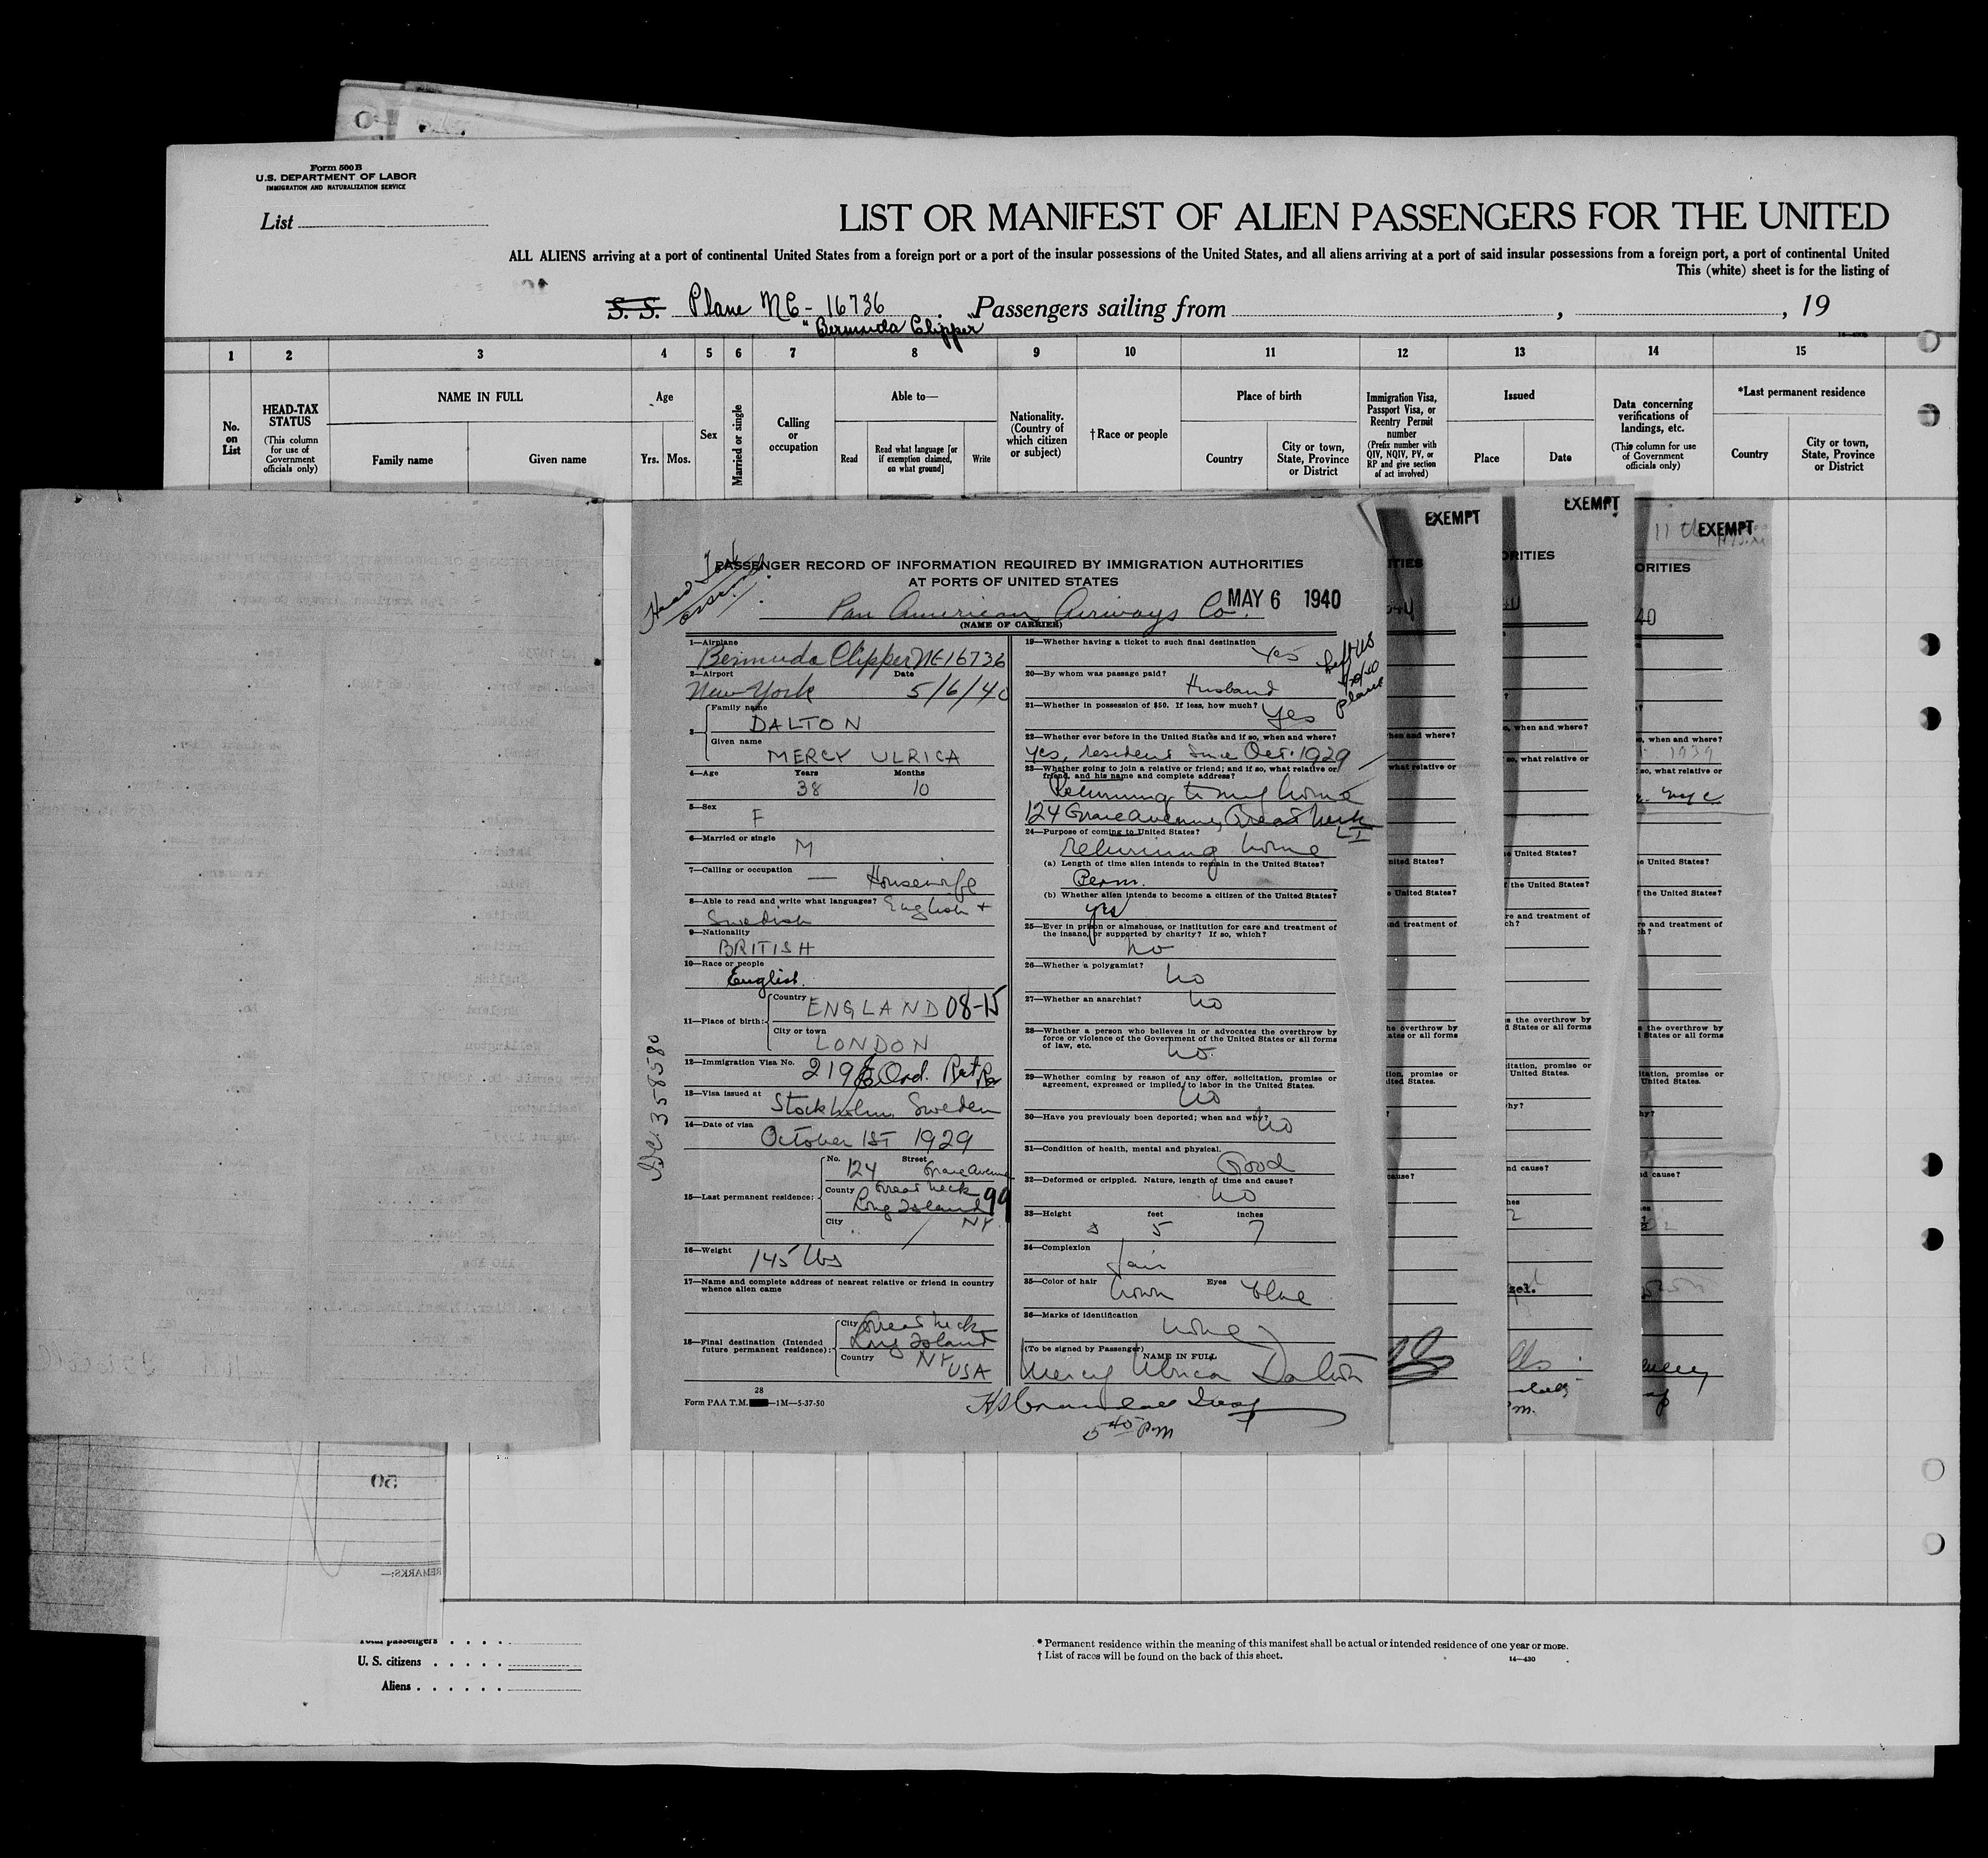 Form 500 B
U.S. DEPARTMENT OF LABOR
IMMIGRATION AND NATURALIZATION SERVICE
List
LIST OR MANIFEST OF ALIEN PASSENGERS FOR THE UNITED
ALL ALIENS arriving at a port of continental United States from a foreign port or a port of the insular possessions of the United States, and all aliens arriving at a port of said insular possessions from a foreign port, a port of continental United
This (white) sheet is for the listing of
S. S. Plane NC-16736 Passengers sailing from , , 19
"Bermuda Clipper"
1 2 3 4 5 6 7 8 9 10 11 12 13 14 15
No. on List
HEAD-TAX STATUS
(This column for use of Government officials only)
NAME IN FULL
Family name
Given name
Age
Yrs. Mos.
Sex
Married or single
Calling or occupation
Able to—
Read
Read what language [or if exemption claimed, on what ground]
Write
Nationality. (Country of which citizen or subject)
† Race or people
Place of birth
Country
City or town, State, Province or District
Immigration Visa, Passport Visa, or Reentry Permit number
(Prefix number with QIV, NQIV, PV, or RP and give section of act involved)
Issued
Place
Date
Data concerning verifications of landings, etc.
(This column for use of Government officials only)
*Last permanent residence
Country
City or town, State, Province or District
EXEMPT
EXEMPT
EXEMPT
Head Tax
PASSENGER RECORD OF INFORMATION REQUIRED BY IMMIGRATION AUTHORITIES
AT PORTS OF UNITED STATES
Pan American Airways Co. MAY 6 1940
(NAME OF CARRIER)
1—Airplane
Bermuda Clipper NC16736
2—Airport Date
New York 5/6/40
3—
Family name
DALTON
Given name
MERCY ULRICA
4—Age Years Months
38 10
5—Sex
F
6—Married or single
M
7—Calling or occupation — Housewife
8—Able to read and write what languages? English +
Swedish
9—Nationality
BRITISH
10—Race or people
English.
11—Place of birth:
Country ENGLAND 08-15
City or town
LONDON
12—Immigration Visa No. 219 Ord.
13—Visa issued at Stockholm Sweden
14—Date of visa October 1ST 1929
15—Last permanent residence:
No. 124 Street Grace Avenue
County Great Neck
Long Island 99
City NY.
16—Weight
145 lbs
17—Name and complete address of nearest relative or friend in country
whence alien came
18—Final destination (Intended
future permanent residence):
City Great Neck
Long Island
Country NY USA
28
Form PAA T.M. —1M—5-37-50
358580
19—Whether having a ticket to such final destination
Yes
Left US
plane
20—By whom was passage paid?
Husband
21—Whether in possession of $50. If less, how much? Yes
22—Whether ever before in the United States and if so, when and where?
Yes, resident since Oct. 1929
23—Whether going to join a relative or friend; and if so, what relative or
friend, and his name and complete address?
Returning to my home
124 Grace Avenue, Great Neck
L I
24—Purpose of coming to United States?
Returning home
(a) Length of time alien intends to remain in the United States?
Perm.
(b) Whether alien intends to become a citizen of the United States?
yes
25—Ever in prison or almshouse, or institution for care and treatment of
the insane, or supported by charity? If so, which?
no
26—Whether a polygamist?
no
27—Whether an anarchist? no
28—Whether a person who believes in or advocates the overthrow by
force or violence of the Government of the United States or all forms
of law, etc.
no.
29—Whether coming by reason of any offer, solicitation, promise or
agreement, expressed or implied, to labor in the United States.
no
30—Have you previously been deported; when and why?
no
31—Condition of health, mental and physical.
Good
32—Deformed or crippled. Nature, length of time and cause?
no
33—Height feet inches
5 7
34—Complexion
fair
35—Color of hair Eyes
brown blue
36—Marks of identification
none
(To be signed by Passenger)
NAME IN FULL
Mercy Ulrica Dalton
5 45 PM
50
REMARKS:—
Total passengers
U. S. citizens
Aliens
* Permanent residence within the meaning of this manifest shall be actual or intended residence of one year or more.
† List of races will be found on the back of this sheet.
14—430